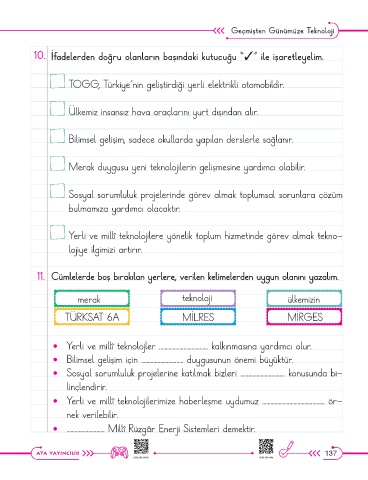 Geçmişten Günümüze Teknoloji
10. İfadelerden doğru olanların başındaki kutucuğu "✓" ile işaretleyelim.
TOGG, Türkiye'nin geliştirdiği yerli elektrikli otomobildir.
Ülkemiz insansız hava araçlarını yurt dışından alır.
Bilimsel gelişim, sadece okullarda yapılan derslerle sağlanır.
Merak duygusu yeni teknolojilerin gelişmesine yardımcı olabilir.
Sosyal sorumluluk projelerinde görev almak toplumsal sorunlara çözüm
bulmamıza yardımcı olacaktır.
Yerli ve millî teknolojilere yönelik toplum hizmetinde görev almak tekno-
lojiye ilgimizi artırır.
11. Cümlelerde boş bırakılan yerlere, verilen kelimelerden uygun olanını yazalım.
merak teknoloji ülkemizin
TÜRKSAT 6A MİLRES MİRGES
• Yerli ve millî teknolojiler ........................ kalkınmasına yardımcı olur.
• Bilimsel gelişim için ........................ duygusunun önemi büyüktür.
• Sosyal sorumluluk projelerine katılmak bizleri ........................ konusunda bi-
linçlendirir.
• Yerli ve millî teknolojilerimize haberleşme uydumuz ........................ ör-
nek verilebilir.
• ........................ Millî Rüzgâr Enerji Sistemleri demektir.
ATA YAYINCILIK
137